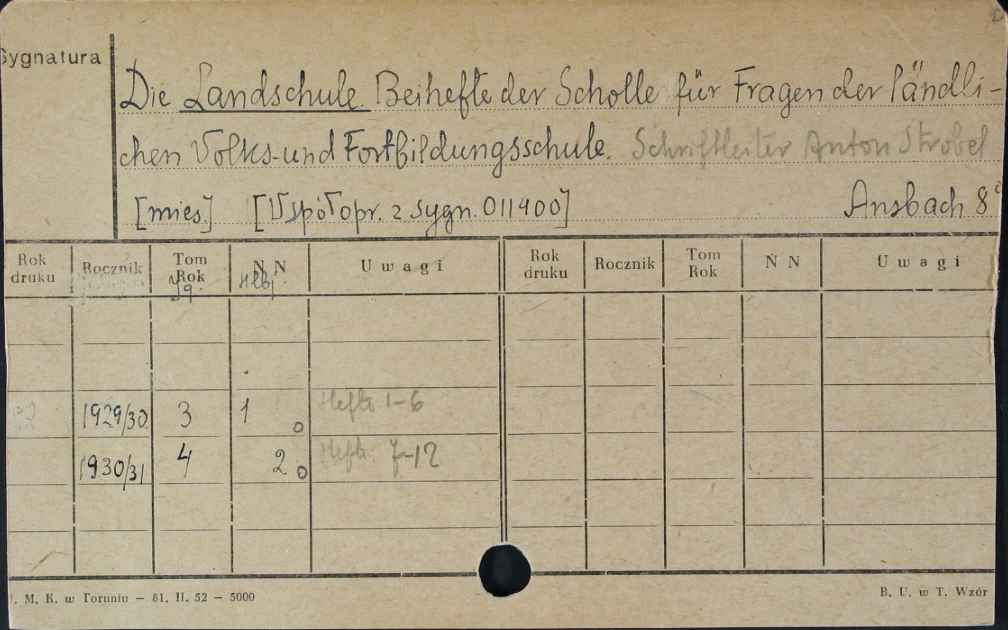 Sygnatura
Die Landschule. Beihefte der Scholle für Fragen der ländli-
chen Volks- und Fortbildungsschule. Schriftleiter Anton Strobel
[mies.] [Współopr. z sygn. 011400] Ansbach 8°
Rok druku Rocznik Tom Rok N N Uwagi Rok druku Rocznik Tom Rok N N Uwagi
Jg. Hlbj.
1929/30 3 1 0 Hefte 1-6
1930/31 4 2 0 Hefte 7-12
. M. K. w Toruniu — 81. II. 52 — 5000 B. U. w T. Wzór